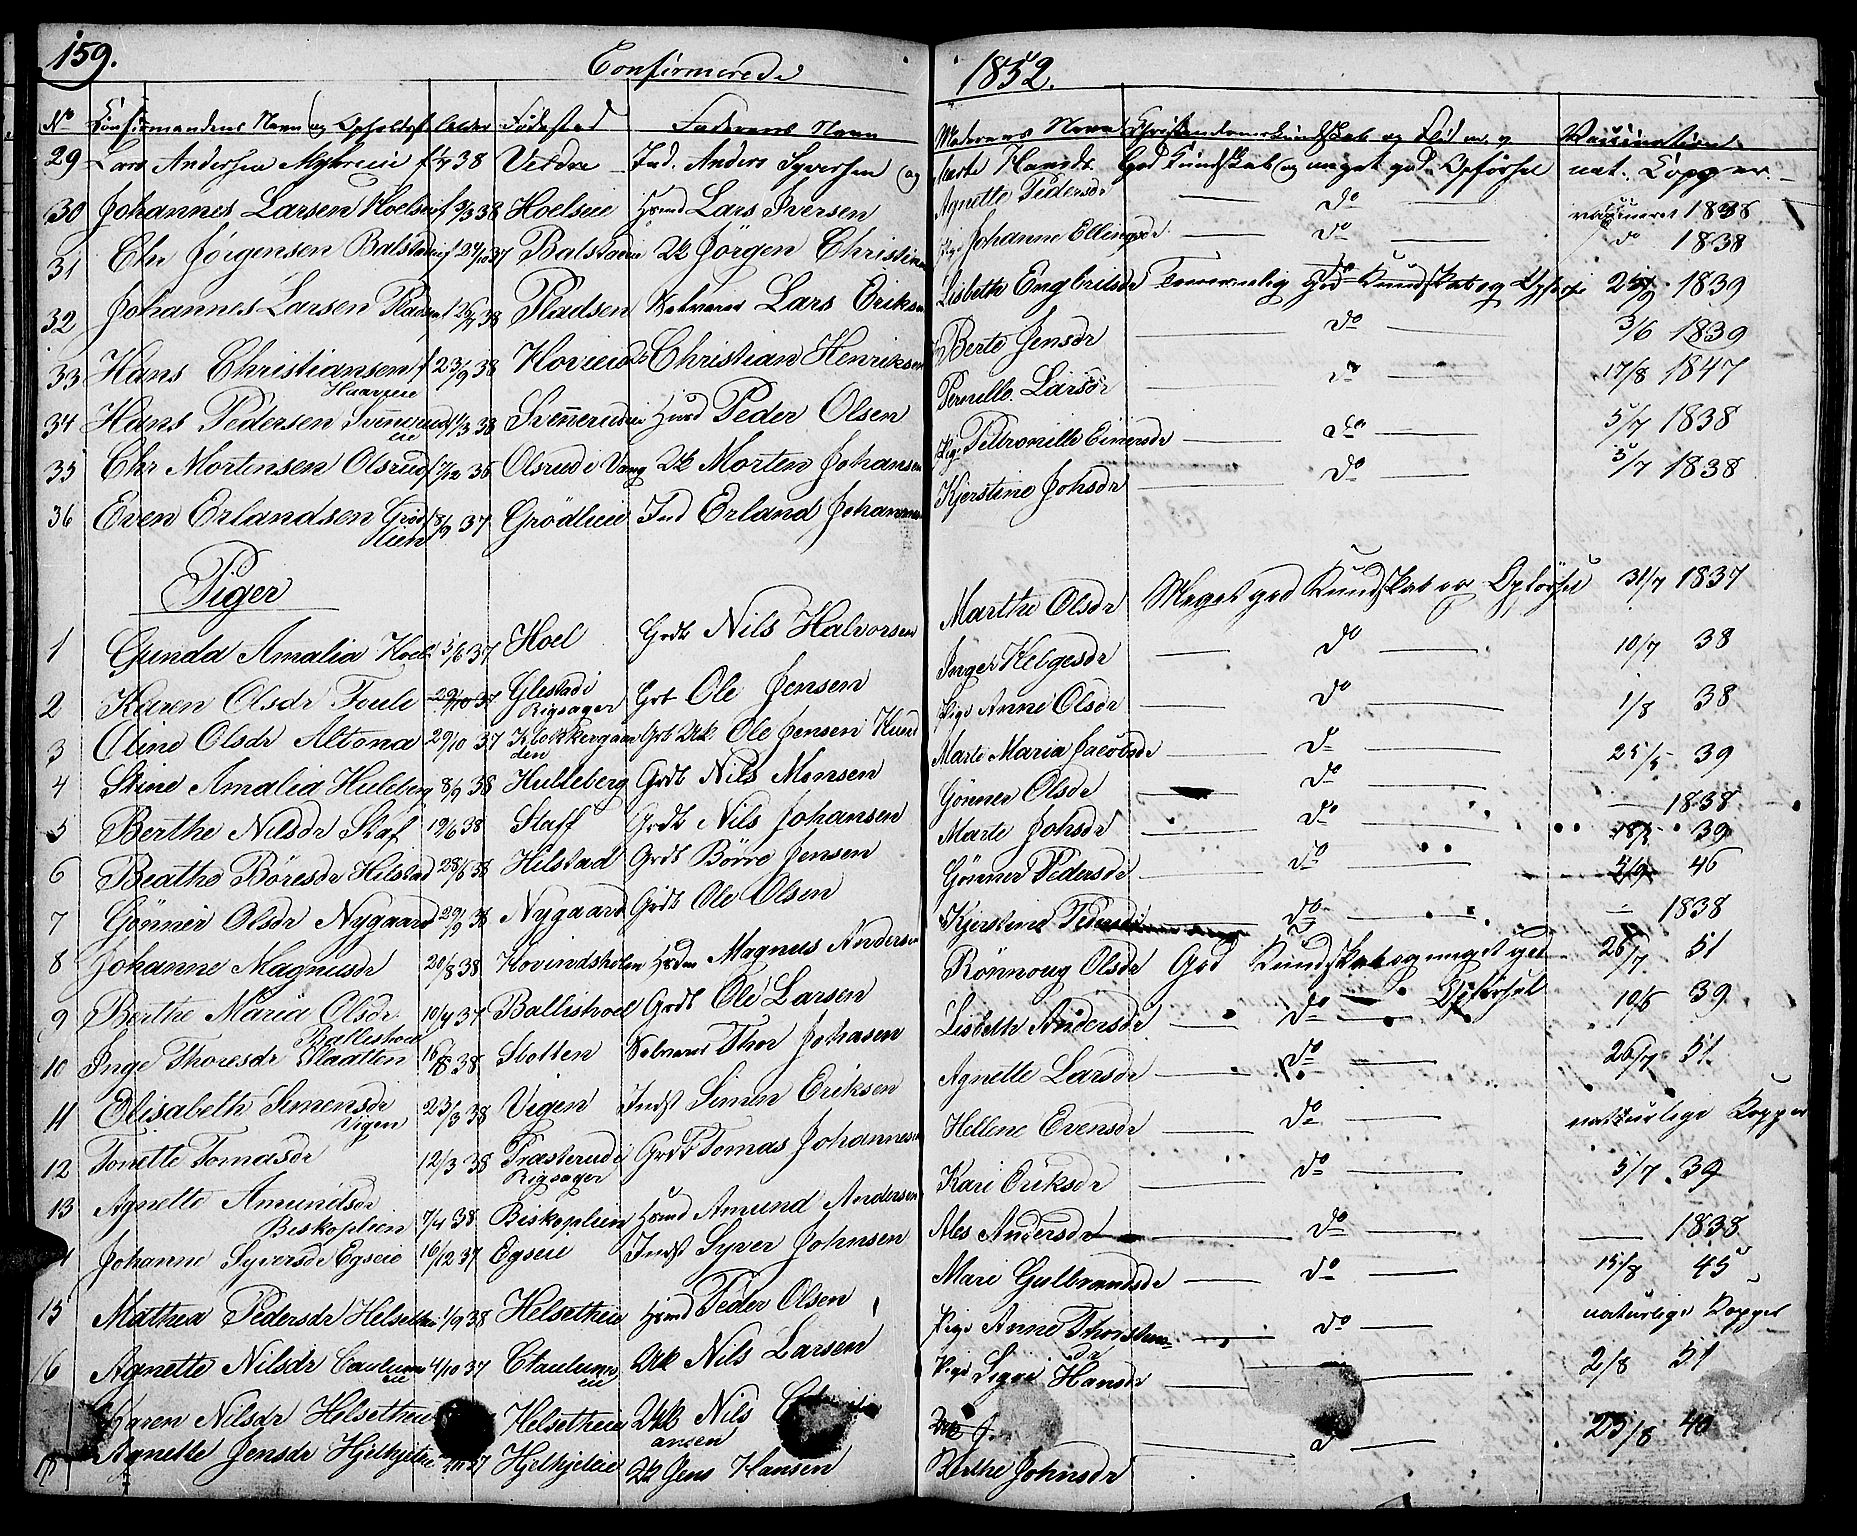 159. Confirmerede 1852.
No Confirmandens Navn og Opholdst Alder Fødested Faderens Navn Moderens Navn Christendomskundskab og Flid m. v. Vaccination
29 Lars Andersen Myhreeie 38 Veldre Ind. Anders Syversen og Marte Hansdr God Kundskab og meget god Opførsel nat. Kopper
30 Johannes Larsen Hoelseie f 3/3 38 Hoelseie Hsmd Lars Iversen Agnette Pedersdr do vaccineret 1838
31 Chr Jörgensen Balstadeie f 24/10 37 Balstadeie Uk Jörgen Christian Pige Johanne Ellingsdr do do 1838
32 Johannes Larsen Pladsen f 26/7 38 Pladsen Selveier Lars Eriksen Lisbeth Engbritsdr Temmelig god Kundskab og Opførsel 25/9 1839
33 Hans Christiansen f 23/9 38 Hovieie Christian Henriksen Berte Jensdr do 3/6 1839
34 Hans Pedersen Svennerud eie 1/3 38 Svennerudeie Husmd Peder Olsen Pernille Larsdr do 17/8 1847
35 Chr Mortensen Olsrud f 7/12 36 Olsrud i Vang Uk Morten Johansen Pige Petronille Einersdr do 5/7 1838
36 Even Erlandsen Grödlien f 8/9 37 Grödlieie Ind Erland Johannesen Kjerstine Johsdr do 5/7 1838
Piger
1 Gunda Amalia Hoel 5/6 37 Hoel Grdb Nils Halvorsen Marthe Olsdr Meget god Kundskab og Opførsel 31/7 1837
2 Karen Olsdr Teule 29/10 37 Glestad i Rigsager Grb Ole Jensen Inger Helgesdr do 10/7 38
3 Oline Olsdr Altona 29/10 37 Klokkergaarden Grb Uk Ole Jensen Pige Anne Olsdr do 1/8 38
4 Stine Amalia Huleberg 8/9 38 Hulleberg Grdb Nils Monsen Marte Maria Jacobsdr do 25/5 39
5 Berthe Nilsdr Staf 19/6 38 Staff Grdb Nils Johansen Gönner Olsdr do 1838
6 Beathe Böresdr Hilstad 28/6 38 Hilstad Grdb Börre Jensen Marte Johsdr do 18/5 39
7 Gönner Olsdr Nygaard 29/9 38 Nygaard Grdb Ole Olsen Gönner Pedersdr do 2/9 46
8 Johanne Magnusdr 20/8 38 Hovindsholm Hsdm Magnus Andersen Kjerstine Pedersdr do 1838
9 Berthe Maria Olsdr Ballishoel 10/4 37 Ballishoel Grdb Ole Larsen Rönnoug Olsdr God Kundskab og meget god Opførsel 26/7 51
10 Inge Thoresdr Sladtten 16/8 38 Slotten Selveier Thor Johasen Lisbeth Andersdr do 10/6 39
11 Elisabeth Simensdr Vigen 23/3 38 Vigen Indst Simen Eriksen Agnette Larsdr do 26/7 51
12 Tonette Tomasdr 12/3 38 Præsterud i Rigsager Grdb Tomas Johannesen Hellene Evensdr do naturlige Kopper
13 Agnette Amundsdr Biskoplien 7/4 38 Biskoplien Hsmd Amund Andersen Kari Eriksdr do 5/7 39
Johanne Syversdr Egseie 16/12 37 Egseie Indst Syver Johnsen Ales Andersdr do 1838
15 Mathea Pedersdr Helsetheie 1/9 38 Helsetheie Hsmd Peder Olsen Mari Gulbrandsdr do 15/8 45
16 Agnette Nilsdr Caulumeie 4/10 37 Ctaulumeie Uk Nils Larsen Pige Anne Thorstensdr do naturlige Kopper
Karen Nilsdr Helsetheie Helsetheie Uk Nils Christiansen Pige Sigri Hansdr 2/8 51
Agnette Jensdr Hjelkjeleie 37 Hjelkjeleie Uk Jens Hansen Berthe Johnsdr do 23/8 40